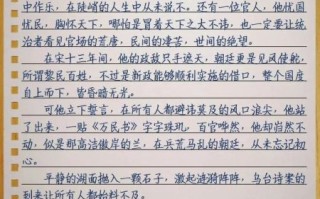 中作乐，在陡峭的人生中从未说不。还有一位官人，他忧国
忧民，胸怀天下，哪怕是冒着天下之大不讳，也一定要让统
治者见官场的荒唐，民间的凄苦，世间的绝望。
在宋十三年间，他的政敌只手遮天，朝廷更是见风使舵，
所谓黎民百姓，不过是新政能够顺利实施的借口，整个国度
自上而下，皆昏暗无光。
可他立下誓言，在所有人都避讳莫及的风口浪尖，他站
了出来，一贴《万民书》字字珠玑。百官哗然，他却岿然不
动，似是那高洁傲岸的兰，在兵荒马乱的朝廷，从未忘记初
心。
平静的湖面抛入一颗石子，激起涟漪阵阵，乌台诗案的
到来让所有人都始料不及。